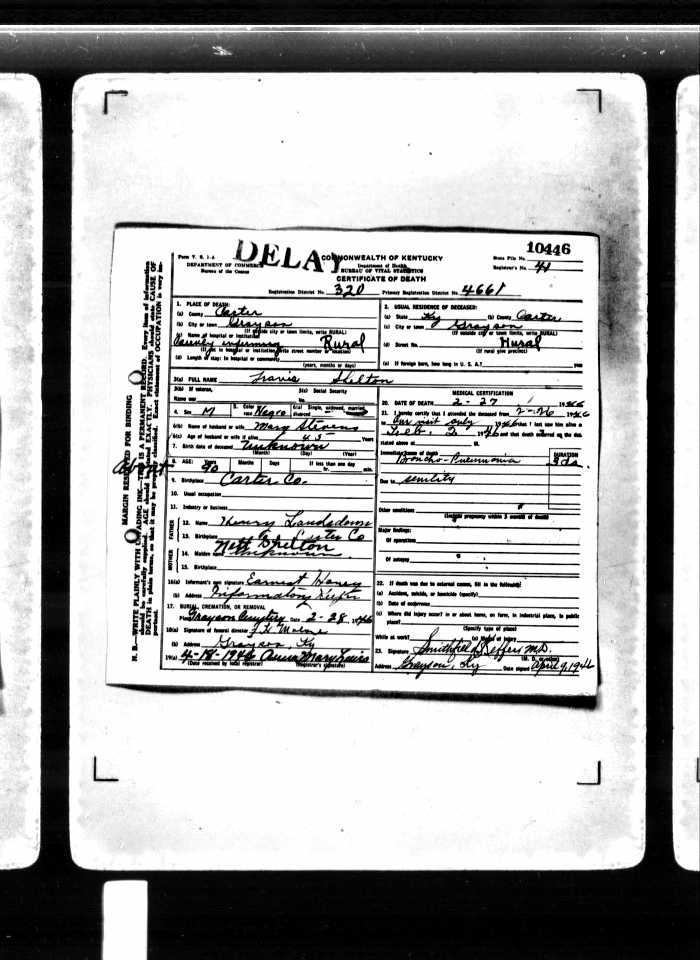 DELAY
10446
Form V. S. 1-A
DEPARTMENT OF COMMERCE
Bureau of the Census
COMMONWEALTH OF KENTUCKY
Department of Health
BUREAU OF VITAL STATISTICS
CERTIFICATE OF DEATH
State File No.
Registrar's No. 41
Registration District No. 320 Primary Registration District No. 4661
1. PLACE OF DEATH:
(a) County Carter
(b) City or town Grayson
(If outside city or town limits, write RURAL)
(c) Name of hospital or institution
County infirmary Rural
(If not in hospital or institution write street number or location)
(d) Length of stay: In hospital or community
(years, months or days)
2. USUAL RESIDENCE OF DECEASED:
(a) State Ky (b) County Carter
(c) City or town Grayson
(If outside city or town limits, write RURAL)
(d) Street No. Rural
(If rural give precinct)
(e) If foreign born, how long in U. S. A.? years
3(a) FULL NAME Travis Shelton
3(b) If veteran, 3(c) Social Security
Name war No.
4. Sex M 5. Color or race Negro 6(a) Single, widowed, married, divorced
6(b) Name of husband or wife Mary Stevens
6(c) Age of husband or wife if alive 45 Years
7. Birth date of deceased Unknown
(Month) (Day) (Year)
8. AGE: Years Months Days If less than one day
About 90 hr. min.
9. Birthplace Carter Co.
10. Usual occupation
11. Industry or business
FATHER
12. Name Henry Landsdown
13. Birthplace Carter Co
MOTHER
Nett Shelton
14. Maiden name Unknown
15. Birthplace
16(a) Informant's own signature Earnest Haney
(b) Address Infirmatory Keeper
17. BURIAL, CREMATION, OR REMOVAL
Place Grayson Cemetery Date 2-28 1946
18(a) Signature of funeral director
(b) Address Grayson, Ky
19(a) 4-18-1946 Anna Mary Lewis
(Date received by local registrar) (Registrar's signature)
MEDICAL CERTIFICATION
20. DATE OF DEATH 2-27 1946
21. I hereby certify that I attended the deceased from 2-26 1946
to One visit only 1946 that I last saw him alive on
Feb. 1946 and that death occurred on the date
stated above at M.
Immediate cause of death DURATION
Broncho-Pneumonia 3 ds.
Due to senility
Other conditions
(Include pregnancy within 3 months of death)
Major findings:
Of operations
Of autopsy
22. If death was due to external causes, fill in the following:
(a) Accident, suicide, or homicide (specify)
(b) Date of occurrence
(c) Where did injury occur? In or about home, on farm, in industrial place, in public
place?
(Specify type of place)
While at work? (e) Means of injury
23. Signature Smithfield Keffer M.D.
(M. D. or other)
Address Grayson, Ky Date signed April 9, 1946
MARGIN RESERVED FOR BINDING
N. B.—WRITE PLAINLY WITH UNFADING INK—THIS IS A PERMANENT RECORD. Every item of information
should be carefully supplied. AGE should be stated EXACTLY. PHYSICIANS should state CAUSE OF
DEATH in plain terms, so that it may be properly classified. Exact statement of OCCUPATION is very im-
portant.